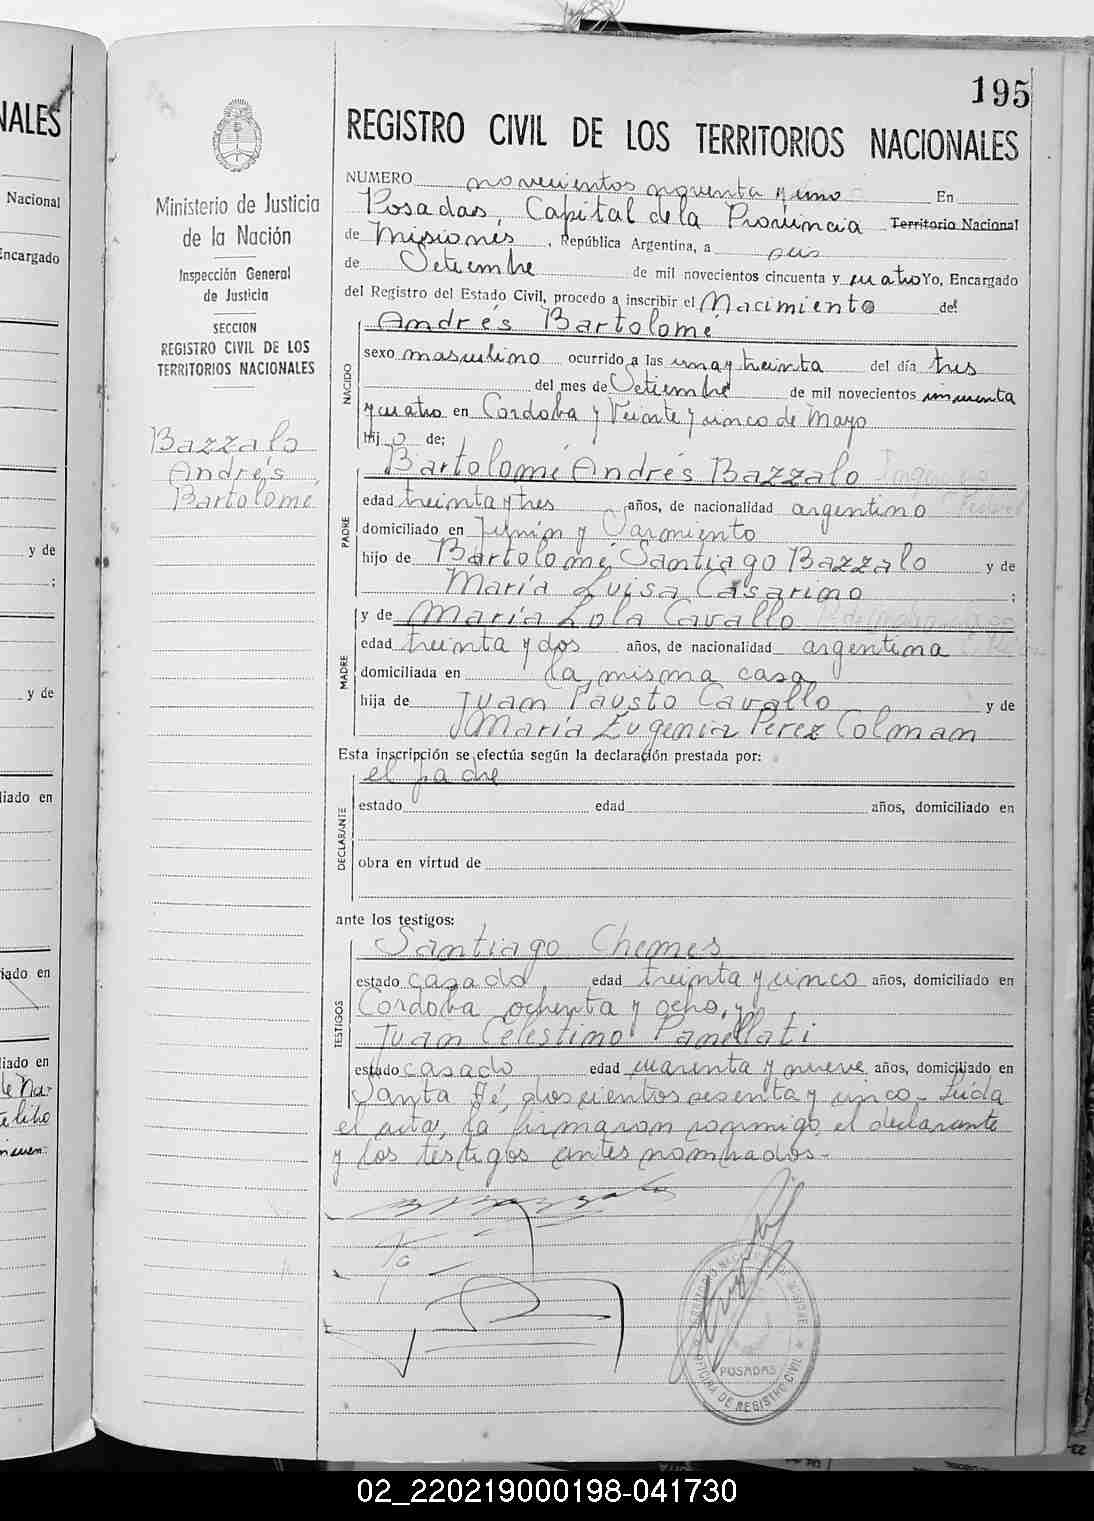 195
NALES
Nacional
Encargado
y de
;
y de
liado en
iado en
liado en
Ministerio de Justicia
de la Nación
Inspección General
de Justicia
SECCION
REGISTRO CIVIL DE LOS
TERRITORIOS NACIONALES
Bazzalo
Andrés
Bartolomé
REGISTRO CIVIL DE LOS TERRITORIOS NACIONALES
NUMERO novecientos noventa y uno En
Posadas, Capital de la Provincia Territorio Nacional
de Misiones, República Argentina, a seis
de Setiembre de mil novecientos cincuenta y cuatro Yo, Encargado
del Registro del Estado Civil, procedo a inscribir el Nacimiento de:
Andrés Bartolomé
NACIDO
sexo masculino ocurrido a las una y treinta del día tres
del mes de Setiembre de mil novecientos cincuenta
y cuatro en Cordoba y Veinte y cinco de Mayo
hijo de;
Bartolomé Andrés Bazzalo
PADRE
edad treinta y tres años, de nacionalidad argentino
domiciliado en Junín y Sarmiento
hijo de Bartolomé Santiago Bazzalo y de
María Luisa Casarino ;
y de María Lola Cavallo
MADRE
edad treinta y dos años, de nacionalidad argentina
domiciliada en la misma casa
hija de Juan Fausto Cavallo y de
María Eugenia Perez Colman
Esta inscripción se efectúa según la declaración prestada por:
el padre
DECLARANTE
estado edad años, domiciliado en
obra en virtud de
ante los testigos:
Santiago Chemes
TESTIGOS
estado casado edad treinta y cinco años, domiciliado en
Cordoba ochenta y ocho, y
Juan Celestino Panellati
estado casado edad cuarenta y nueve años, domiciliado en
Santa Fé, doscientos sesenta y cinco - Leída
el acta, la firmaron conmigo, el declarante
y los testigos antes nombrados.-
POSADAS
OFICINA DE REGISTRO CIVIL
02_220219000198-041730